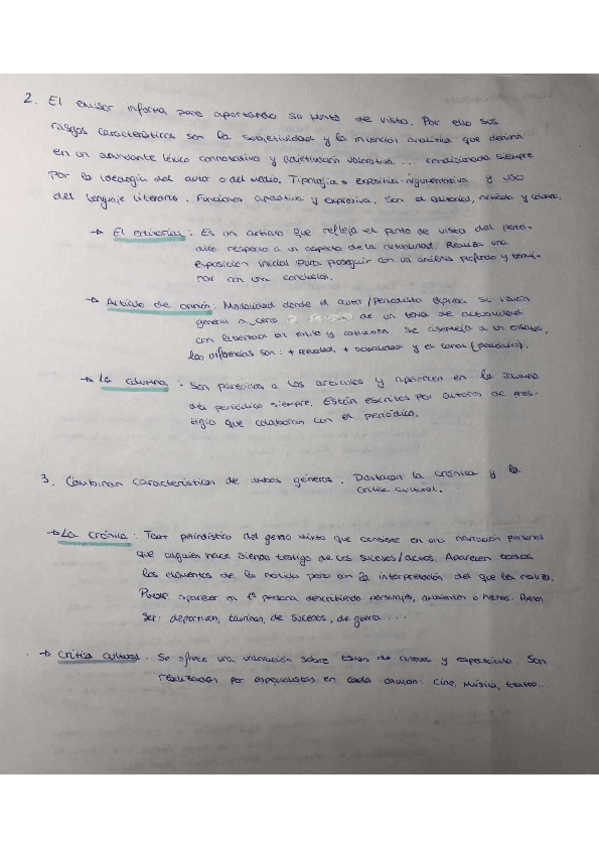 2. El emisor informa pero aportando su punto de vista. Por ello sus
rasgos característicos son la subjetividad y la intención analítica que deriva
en un abundante léxico connotativo y adjetivación valorativa... condicionada siempre
por la ideología del autor o del medio. Tipología expositiva-argumentativa y uso
del lenguaje literario. Funciones apelativa y expresiva. Son el editorial, artículo y columna.
→ El editorial: Es un artículo que refleja el punto de vista del perió-
dico respecto a un aspecto de la actualidad. Realiza una
exposición inicial para proseguir con un análisis profundo y termi-
nar con una conclusión.
→ Artículo de opinión: Modalidad donde el autor/periodista expresa su visión
general de un tema de actualidad
con libertad de estilo y contenido. Se asemeja a un ensayo,
las diferencias son: + actualidad, + y el canal (periódico).
→ La columna: Son parecidas a los artículos y aparecen en la columna
del periódico siempre. Están escritos por autores de pres-
tigio que colaboran con el periódico.
3. Combinan características de ambos géneros. Destacan la crónica y la
crítica cultural.
→ La crónica: Texto periodístico del género mixto que consiste en una narración personal
que alguien hace siendo testigo de los sucesos/actos. Aparecen todos
los elementos de la noticia pero con la interpretación del que la realiza.
Puede aparecer en 1ª persona, describiendo personajes, ambientes o hechos. Pueden
ser: deportivas, taurinas, de sucesos, de guerra...
→ Crítica cultural. Se ofrece una valoración sobre temas de cultura y espectáculo. Son
realización por especialistas en cada cine, música, teatro...